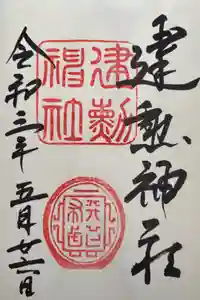 建勲神社
建勲神社
令和三年五月廿六日